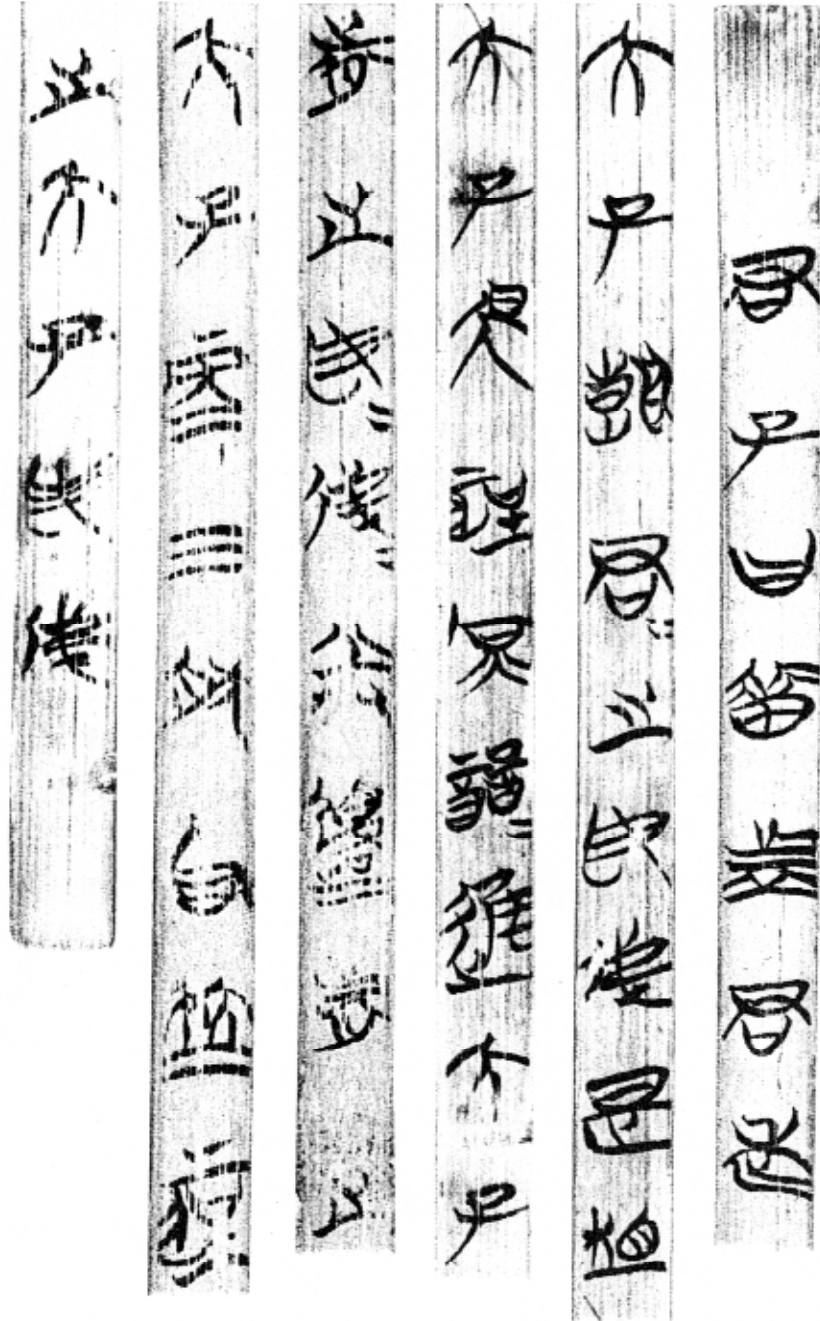 君子曰昔者君老
大子朝君=之母俤是相
大子昃聖庶謁=進大子
前之母=俤=送退前之
大子再三肰后竝聖
之大子母俤